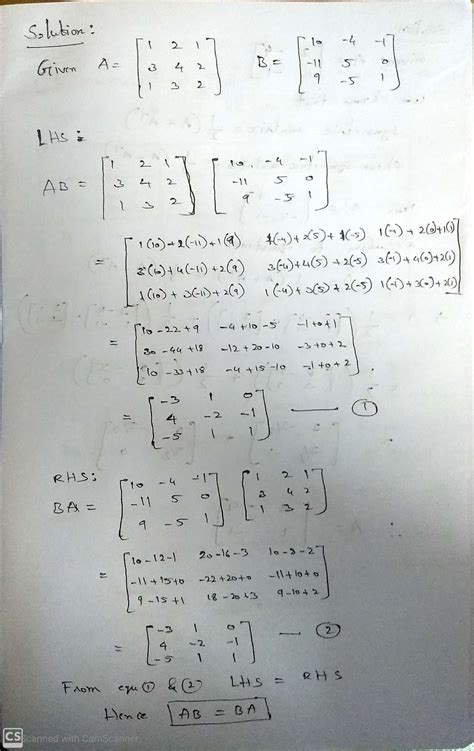 Solution:
Given A = [ 1 2 1 B = [ 10 -4 -1
3 4 2 -11 5 0
1 3 2 ] 9 -5 1 ]
LHS:
AB = [ 1 2 1 ] [ 10 -4 -1
3 4 2 -11 5 0
1 3 2 9 -5 1 ]
= [ 1(10)+2(-11)+1(9) 1(-4)+2(5)+1(-5) 1(-1)+2(0)+1(1)
3(10)+4(-11)+2(9) 3(-4)+4(5)+2(-5) 3(-1)+4(0)+2(1)
1(10)+3(-11)+2(9) 1(-4)+3(5)+2(-5) 1(-1)+3(0)+2(1) ]
= [ 10-22+9 -4+10-5 -1+0+1
30-44+18 -12+20-10 -3+0+2
10-33+18 -4+15-10 -1+0+2 ]
= [ -3 1 0
4 -2 -1
-5 1 1 ] — ①
RHS:
BA = [ 10 -4 -1 ] [ 1 2 1
-11 5 0 3 4 2
9 -5 1 1 3 2 ]
= [ 10-12-1 20-16-3 10-8-2
-11+15+0 -22+20+0 -11+10+0
9-15+1 18-20+3 9-10+2 ]
= [ -3 1 0
4 -2 -1
-5 1 1 ] — ②
From equ ① & ② LHS = RHS
Hence AB = BA
CS Scanned with CamScanner